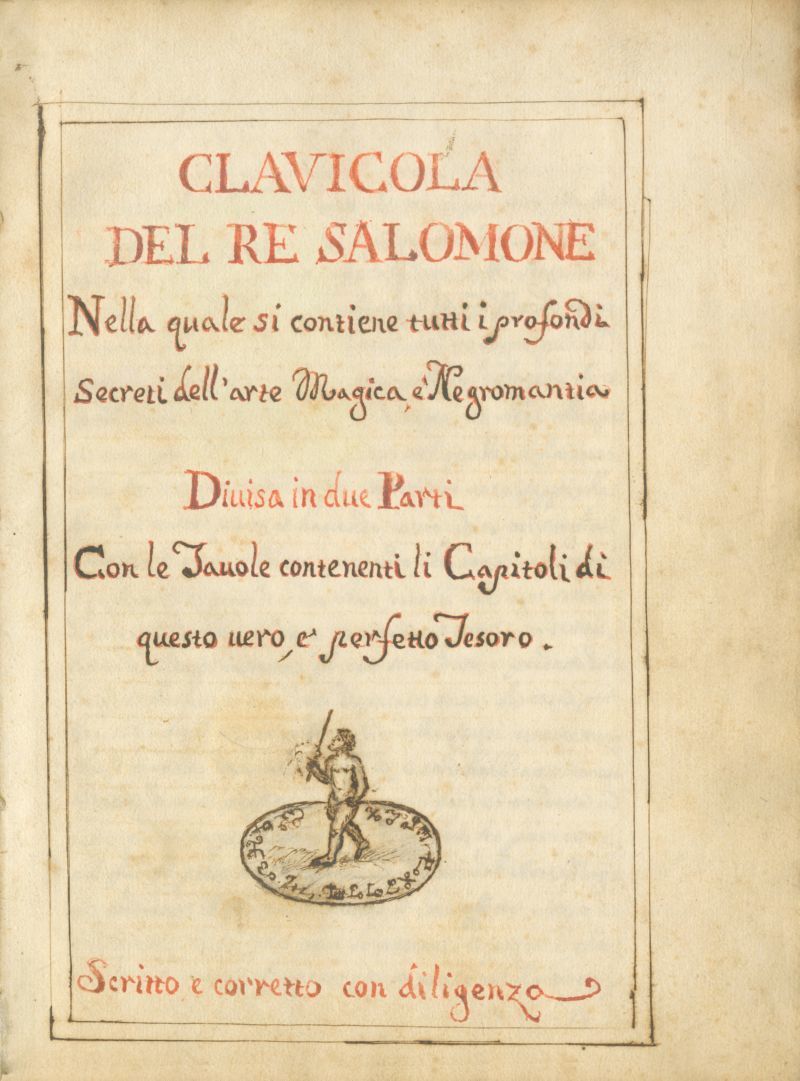 CLAVICOLA
DEL RE SALOMONE
Nella quale si contiene tutti i profondi
Secreti dell'arte Magica, e Negromantia
Diuisa in due Parti
Con le Tauole contenenti li Capitoli di
questo uero, e perfetto Tesoro.
Scritto e corretto con diligenza